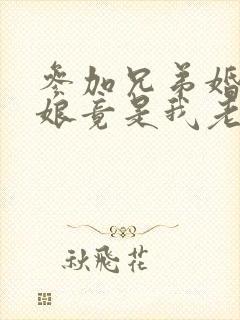 参加兄弟婚
娘竟是我老
秋飛花